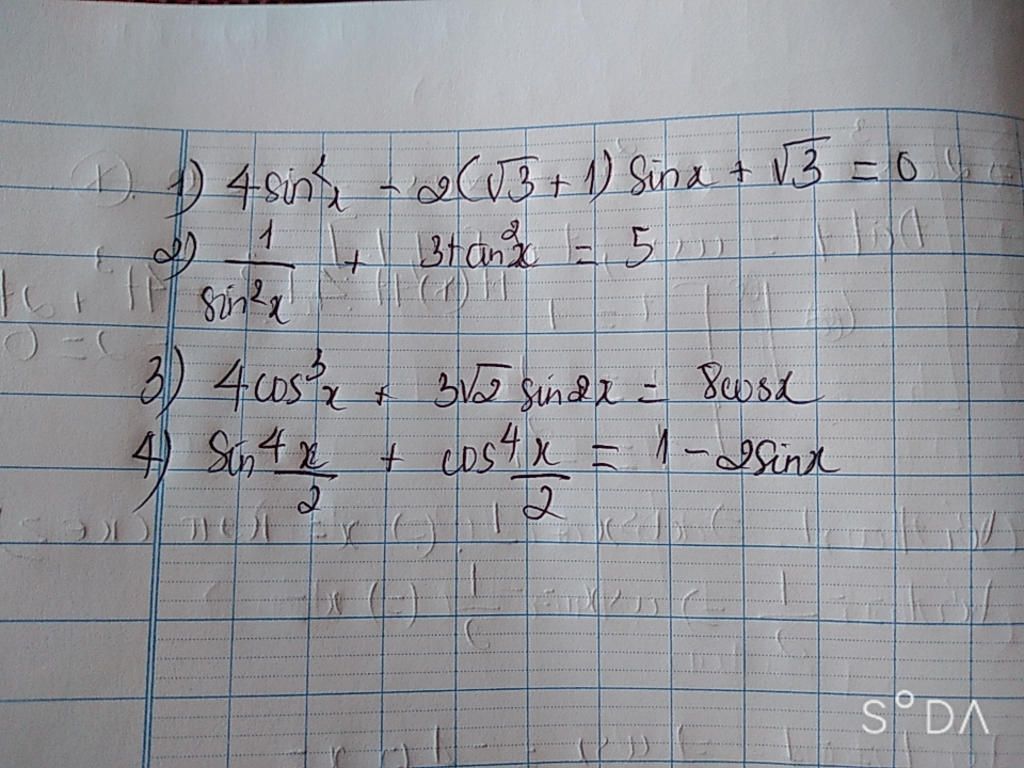 1) 4sin²x - 2(√3 + 1) sinx + √3 = 0
2) 1/sin²x + 3tan²x = 5
3) 4cos³x + 3√2 sin2x = 8cosx
4) sin⁴ x/2 + cos⁴ x/2 = 1 - 2sinx
S°DA